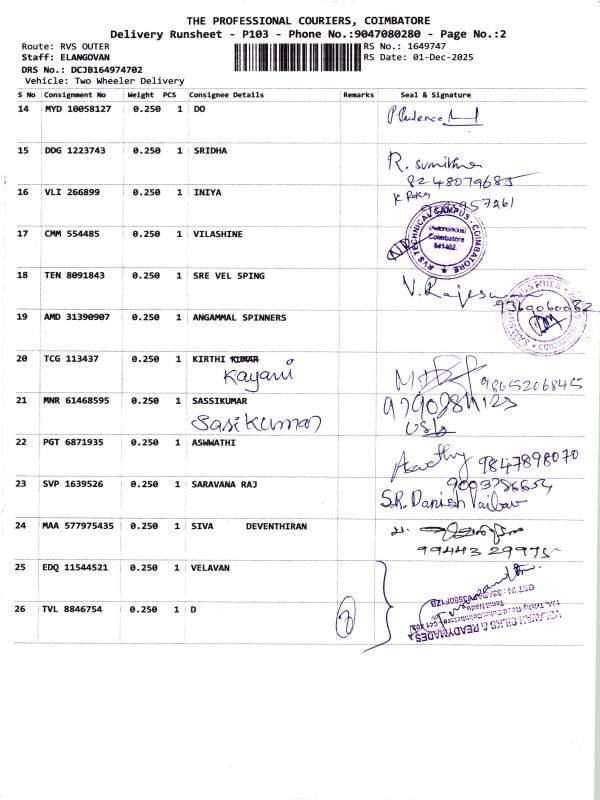 THE PROFESSIONAL COURIERS, COIMBATORE
Delivery Runsheet - P103 - Phone No.:9047080280 - Page No.:2
Route: RVS OUTER RS No.: 1649747
Staff: ELANGOVAN RS Date: 01-Dec-2025
DRS No.: DCJB164974702
Vehicle: Two Wheeler Delivery
S No Consignment No Weight PCS Consignee Details Remarks Seal & Signature
14 MYD 10058127 0.250 1 DO
15 DDG 1223743 0.250 1 SRIDHA
R. Sumithra
8248079685
16 VLI 266899 0.250 1 INIYA
17 CMM 554485 0.250 1 VILASHINE
RVS TECHNICAL CAMPUS - COIMBATORE
(Autonomous)
Coimbatore
641402.
18 TEN 8091843 0.250 1 SRE VEL SPING
V. Rajeswari
9369060082
19 AMD 31390907 0.250 1 ANGAMMAL SPINNERS
20 TCG 113437 0.250 1 KIRTHI KUMAR
Kayani
9865206845
21 MNR 61468595 0.250 1 SASSIKUMAR
Sasi Kumar
22 PGT 6871935 0.250 1 ASWWATHI
Aswathy 9847898070
23 SVP 1639526 0.250 1 SARAVANA RAJ
S.R. Danish Vaibav
24 MAA 577975435 0.250 1 SIVA DEVENTHIRAN
99443 29975
25 EDQ 11544521 0.250 1 VELAVAN
26 TVL 8846754 0.250 1 D
VELAVAN SILKS & READYMADES